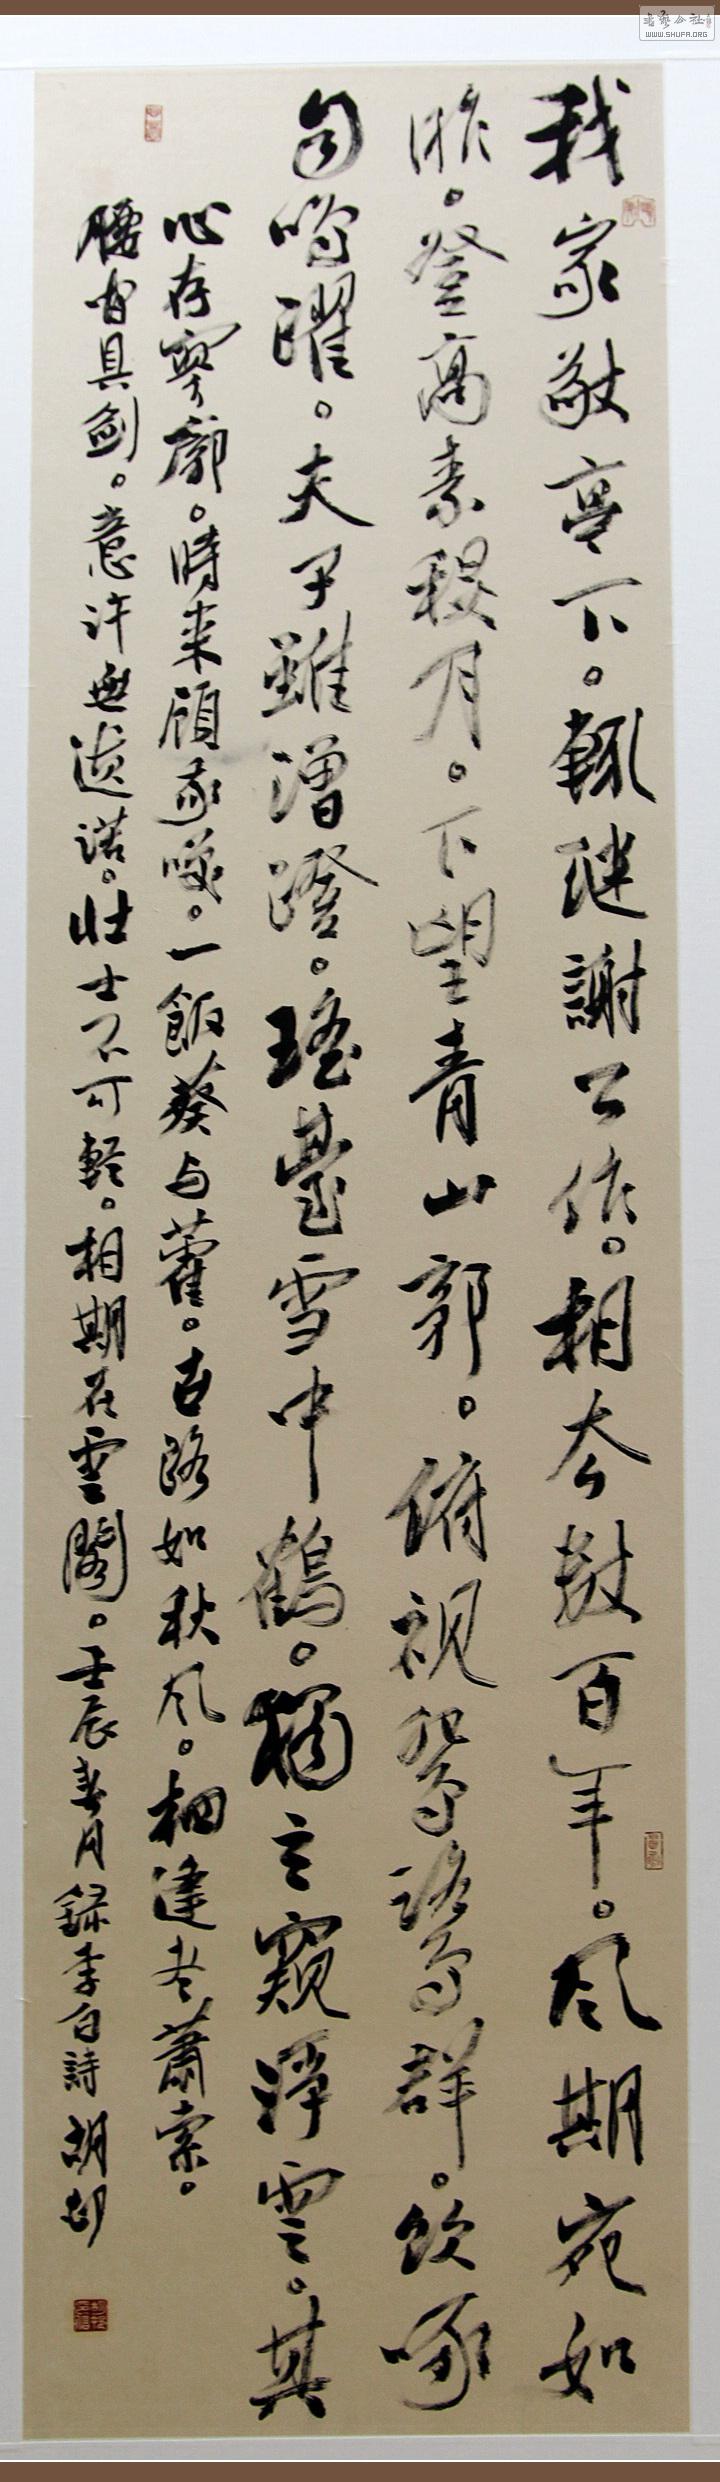 書藝公社
WWW.SHUFA.ORG
我家敬亭下。輒継謝公作。相去數百年。風期宛如
昨。登高素秋月。下望青山郭。俯視鴛鷺群。飲啄
自鳴躍。夫子雖蹭蹬。瑤臺雪中鶴。獨立窺浮雲。其
心存寥廓。時来顧我咲。一飯葵与藿。世路如秋風。相逢尽蕭索。
腰間具劍。意許無遺諾。壯士不可輕。相期在雲閣。壬辰春月録李白詩 胡